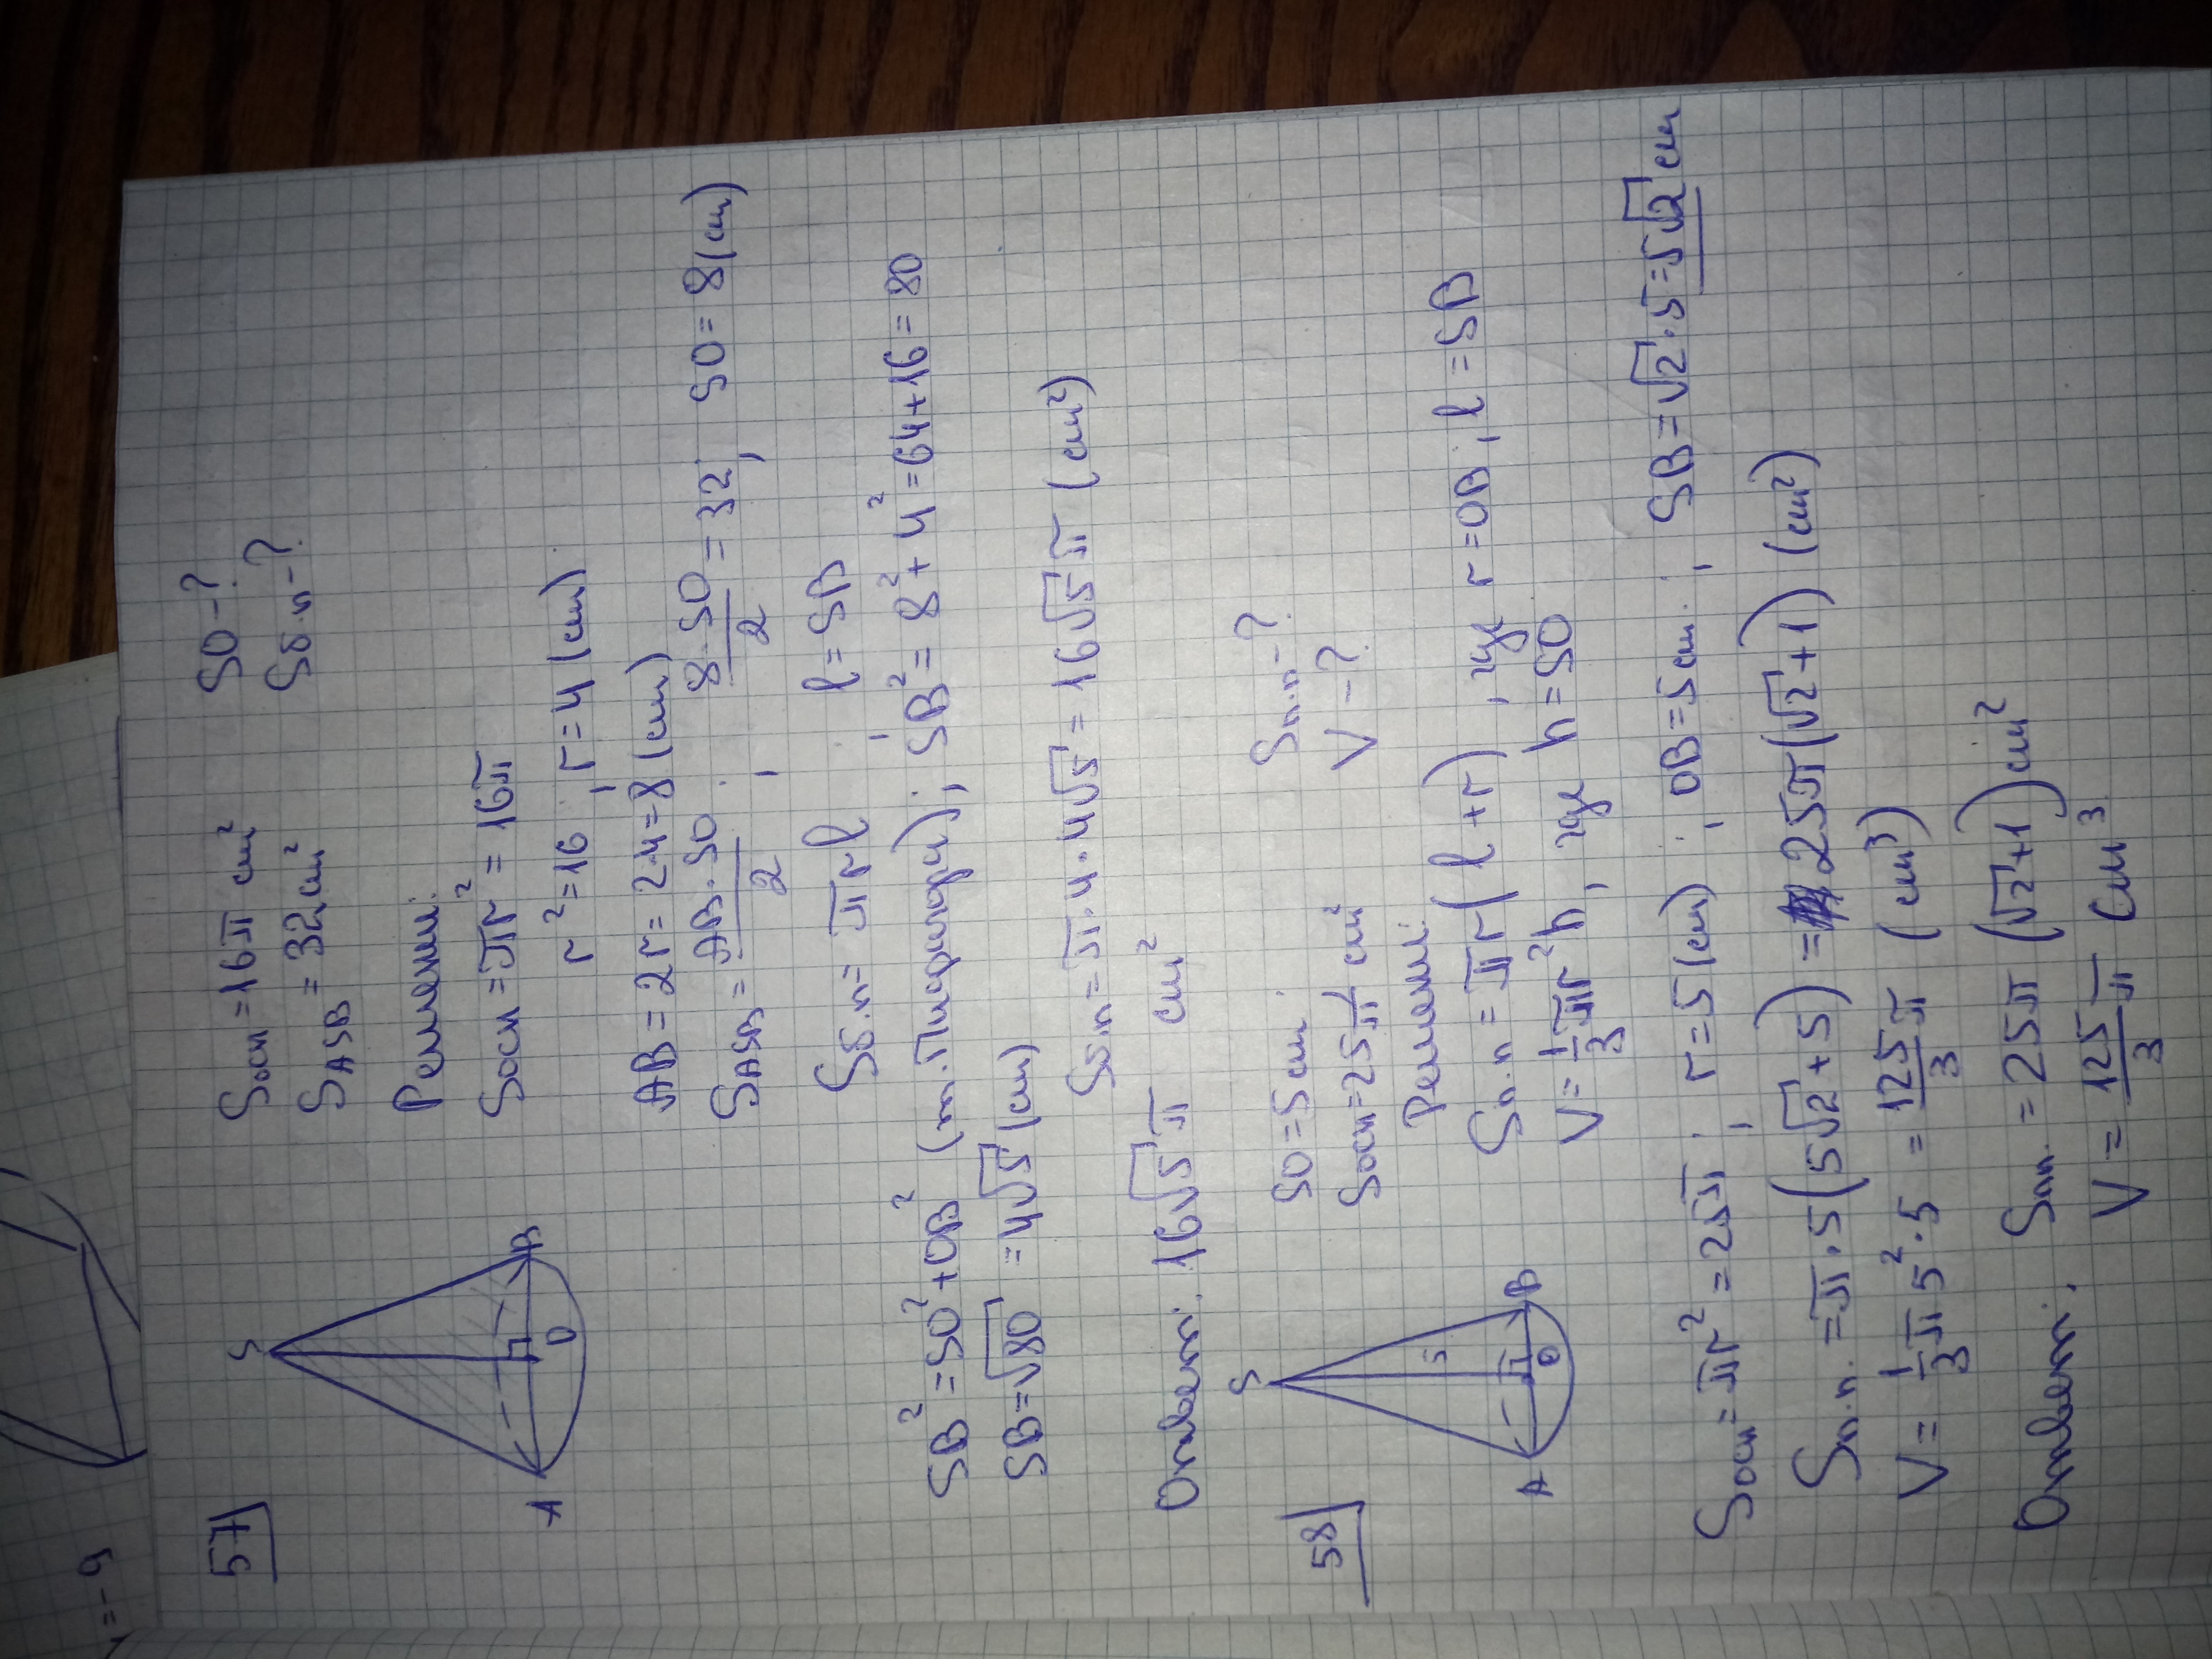 57
S
A
O
B
Sосн = 16π см²    SO - ?
S_ASB = 32 см²    Sб.п - ?
Решение:
Sосн = πr² = 16π
r² = 16, r = 4 (см)
AB = 2r = 2·4 = 8 (см)
S_ASB = AB·SO/2, 8·SO/2 = 32, SO = 8 (см)
Sб.п = πrl, l = SB
SB² = SO² + OB² (т. Пифагора); SB² = 8² + 4² = 64 + 16 = 80
SB = √80 = 4√5 (см)
Sб.п = π·4·4√5 = 16√5 π (см²)
Ответ: 16√5 π см²
58
S
5
A
O
B
SO = 5 см    Sп.п - ?
Sосн = 25π см²    V - ?
Решение:
Sп.п = πr(l + r), где r = OB, l = SB
V = 1/3 πr²h, где h = SO
Sосн = πr² = 25π; r = 5 (см); OB = 5 см; SB = √2·5 = 5√2 см
Sп.п. = π·5(5√2 + 5) = 25π(√2 + 1) (см²)
V = 1/3 π 5²·5 = 125/3 π (см³)
Ответ: Sпп. = 25π (√2 + 1) см²
V = 125/3 π см³
= - 9